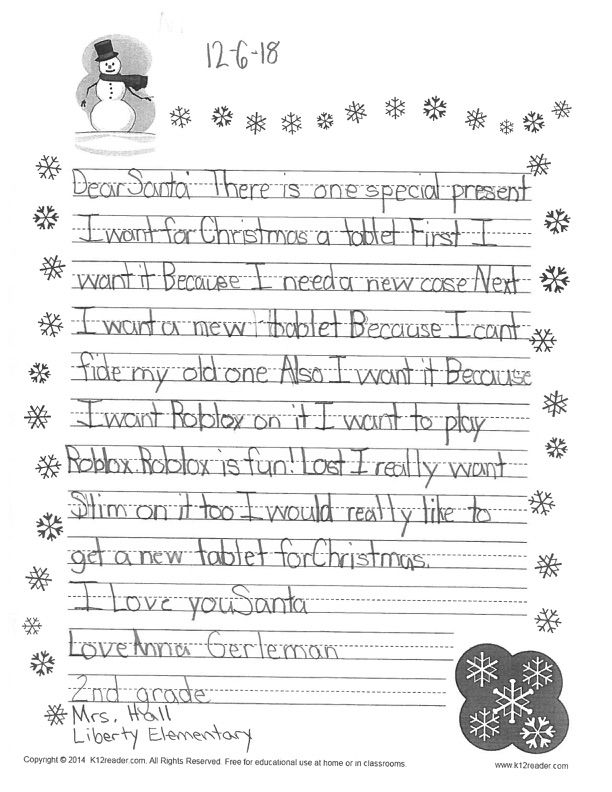 12-6-18
Dear Santa There is one special present
I want for Christmas a tablet First I
want it Because I need a new case Next
I want a new tablet Because I cant
fide my old one Also I want it Because
I want Roblox on it I want to play
Roblox. Roblox is fun! Last I really want
Slim on it too I would really like to
get a new tablet for Christmas.
I Love you Santa
Love Anna Gerleman
2nd grade
Mrs. Hall
Liberty Elementary
Copyright © 2014 K12reader.com. All Rights Reserved. Free for educational use at home or in classrooms.
www.k12reader.com